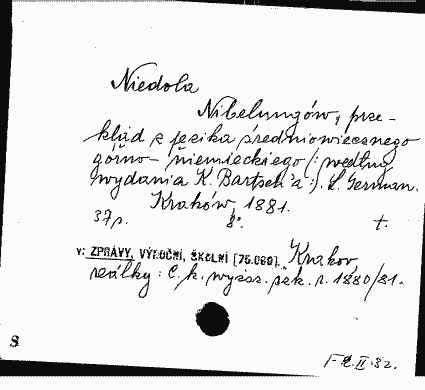 Niedola
Nibelungów, prze-
kład z języka średniowiecznego
górno-niemieckiego (: według
wydania K. Bartsch'a :). L. German.
Kraków, 1881.
37 p. 8°. t.
v: ZPRÁVY, VÝROČNÍ, ŠKOLNÍ [75.089]. Krakov,
reálky: C. k. wyższ. szk. r. 1880/81.
S
II. 82.